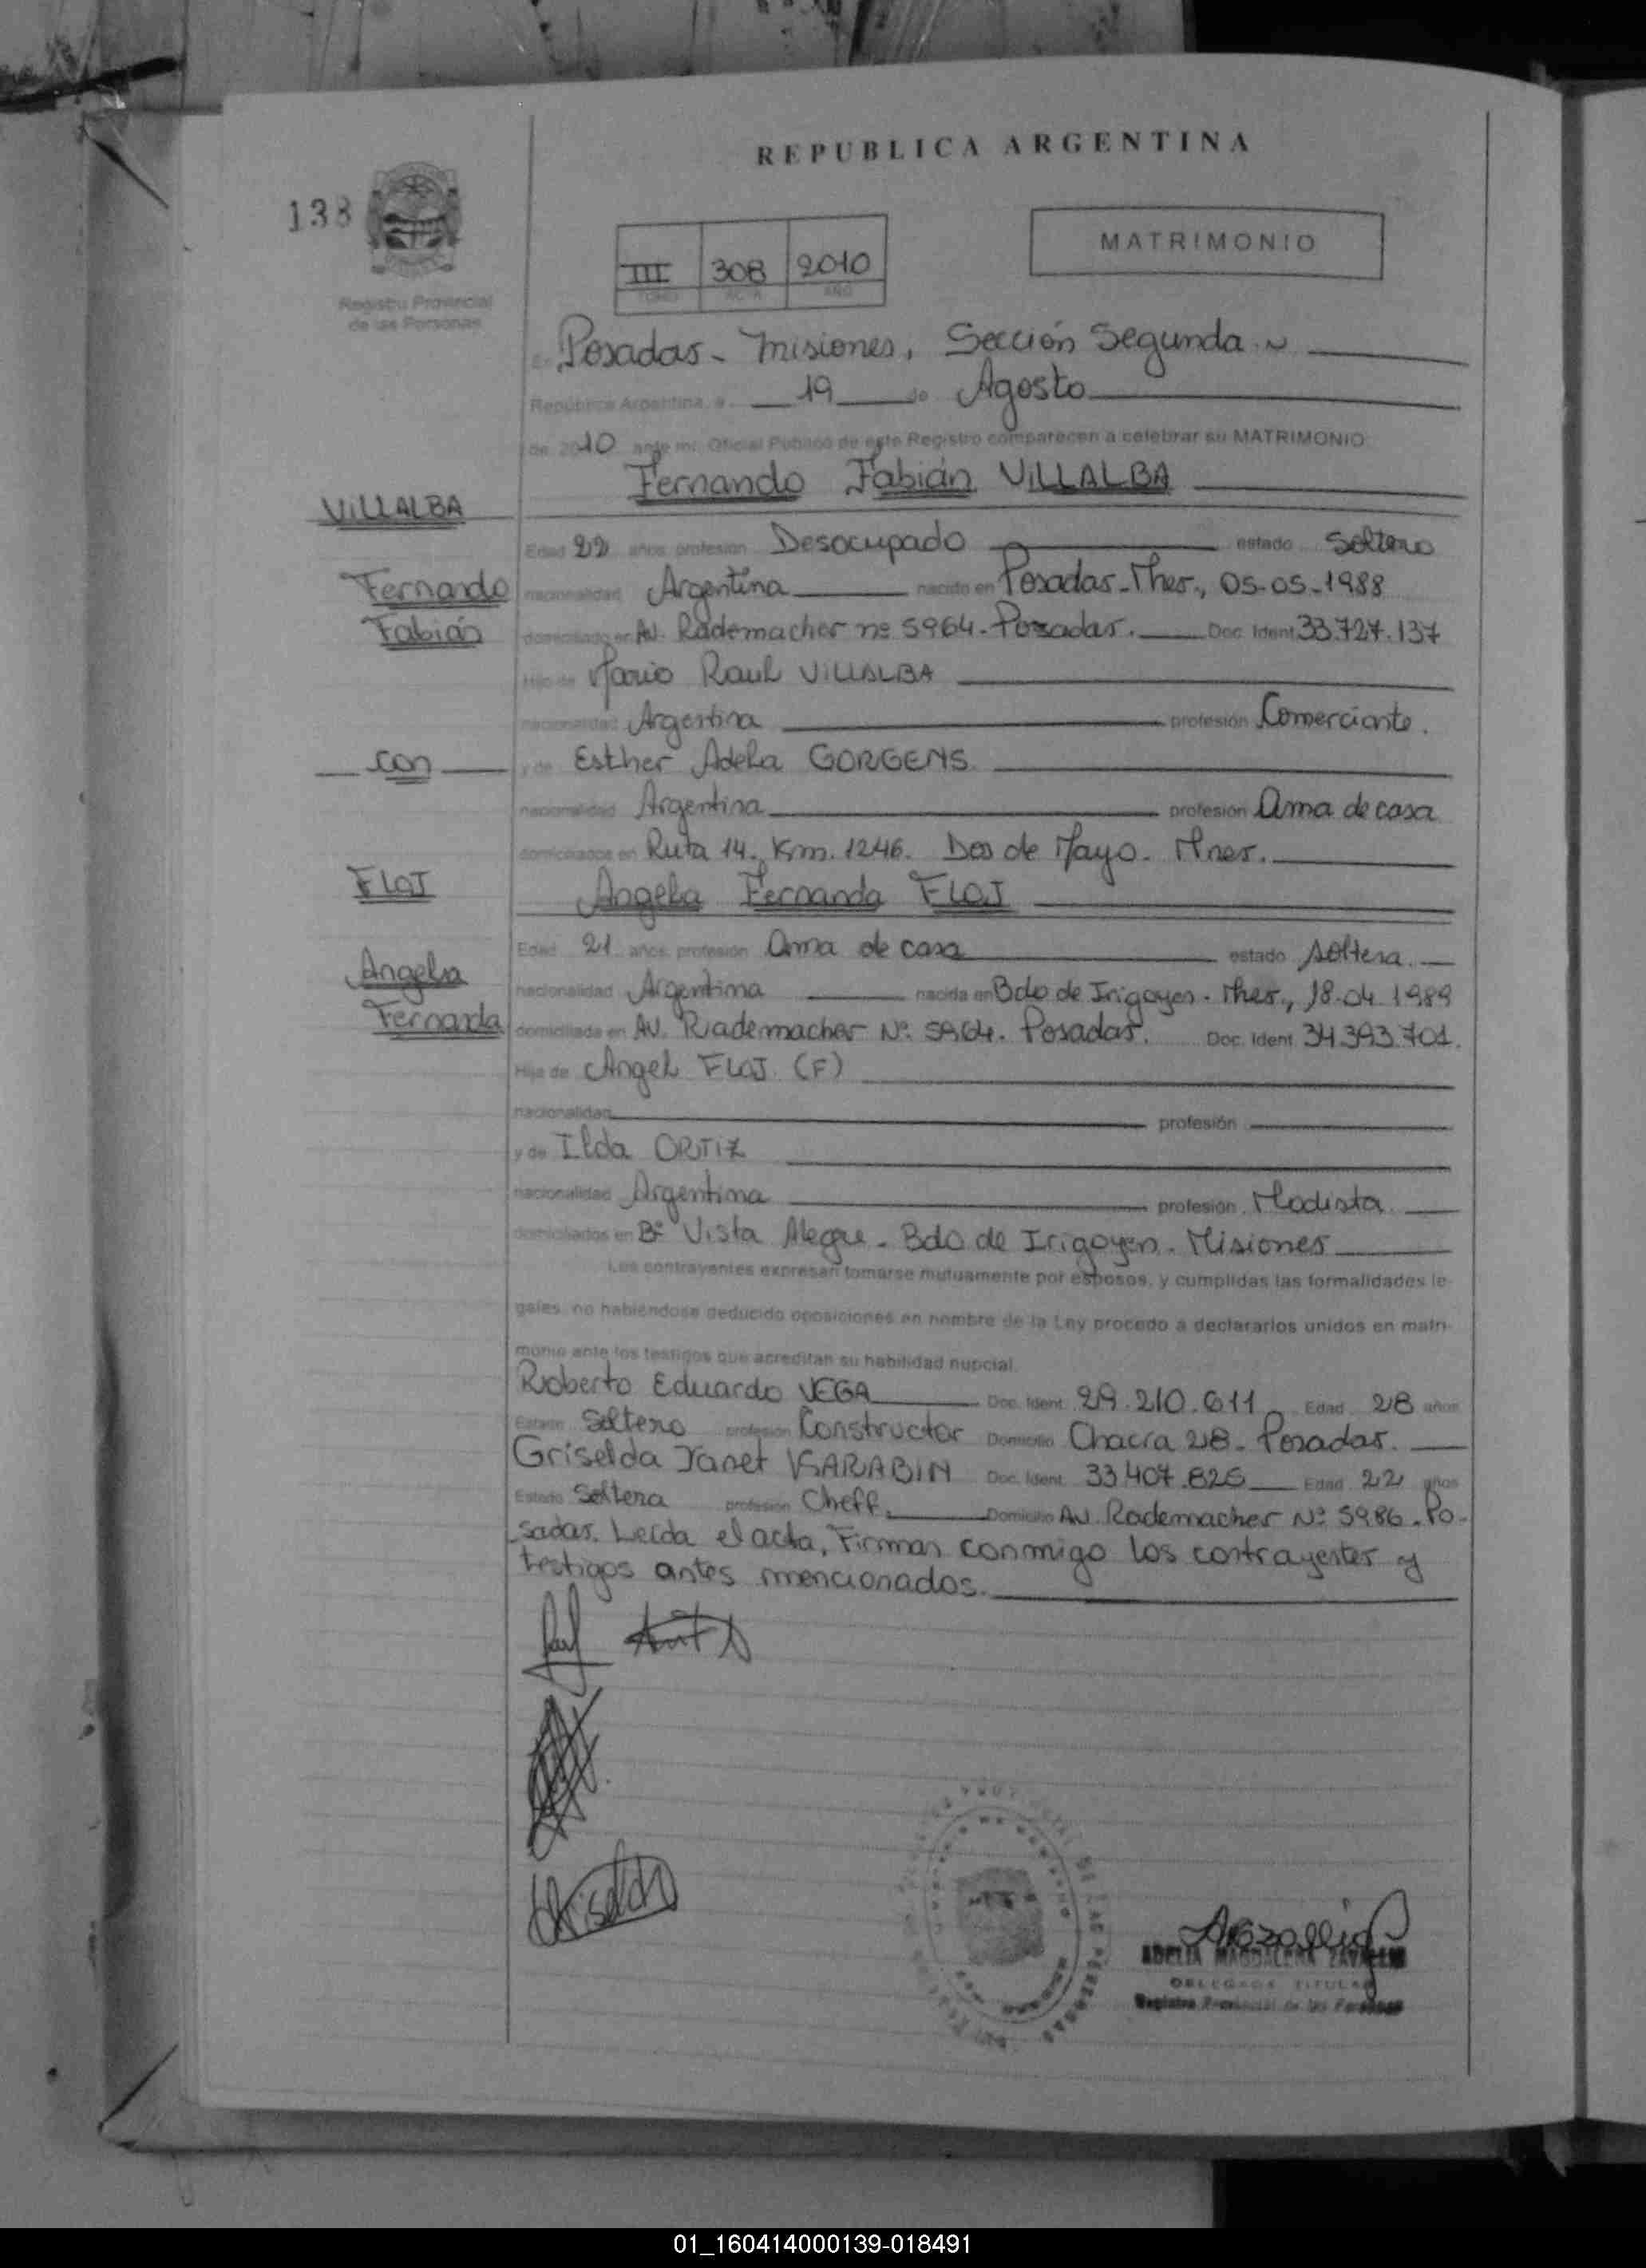 REPUBLICA ARGENTINA
138
MATRIMONIO
III 308 2010
TOMO ACTA AÑO
Registro Provincial
de las Personas
En Posadas - Misiones, Sección Segunda. ~
República Argentina, a 19 de Agosto
de 2010 ante mi, Oficial Público de este Registro comparecen a celebrar su MATRIMONIO:
Fernando Fabián VILLALBA
VILLALBA
Edad 22 años profesión Desocupado estado Soltero
Fernando nacionalidad Argentina nacido en Posadas-Mnes., 05-05-1988
Fabián domiciliado en AV. Rademacher nº 5964. Posadas. Doc. Ident. 33.727.137
Hijo de Mario Raul VILLALBA
nacionalidad Argentina profesión Comerciante.
con y de Esther Adela GORGENS
nacionalidad Argentina profesión Ama de casa
domiciliados en Ruta 14. Km. 1246. Dos de Mayo. Mnes.
FLOJ
Angela Fernanda FLOJ
Edad 21 años profesión Ama de casa estado soltera.
Angela nacionalidad Argentina nacida en Bdo de Irigoyen. Mnes., 18-04-1989
Fernanda domiciliada en AV. Rademacher Nº 5964. Posadas. Doc. Ident. 34.393.701.
Hija de Angel FLOJ. (F)
nacionalidad profesión
y de Ilda ORTIZ
nacionalidad Argentina profesión Modista.
domiciliados en Bº Vista Alegre. Bdo. de Irigoyen. Misiones
Los contrayentes expresan tomarse mutuamente por esposos, y cumplidas las formalidades le-
gales, no habiéndose deducido oposiciones en nombre de la Ley procedo a declararlos unidos en matri-
monio ante los testigos que acreditan su habilidad nupcial.
Roberto Eduardo VEGA Doc. Ident. 29.210.611 Edad 28 años
Estado Soltero profesión Constructor Domicilio Chacra 28. Posadas.
Griselda Yanet KARABIN Doc. Ident. 33.407.826 Edad 22 años
Estado Soltera profesión Cheff. Domicilio AV. Rademacher Nº 5986. Po-
sadas. Leída el acta, Firman conmigo los contrayentes y
testigos antes mencionados.
ADELIA MAGDALENA
DELEGADA TITULAR
Registro Provincial de las Personas
01_160414000139-018491